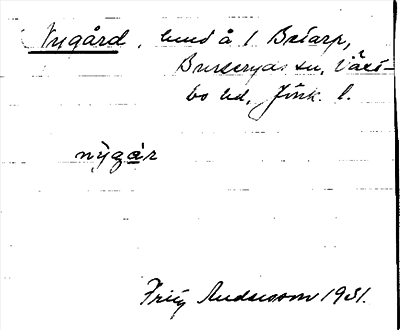 Nygård, hmd å 1 Betarp,
Burseryds sn, Väst-
bo hd, Jönk. l.
nỳgár
Frig Andersson 1931.